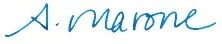 A. Marone